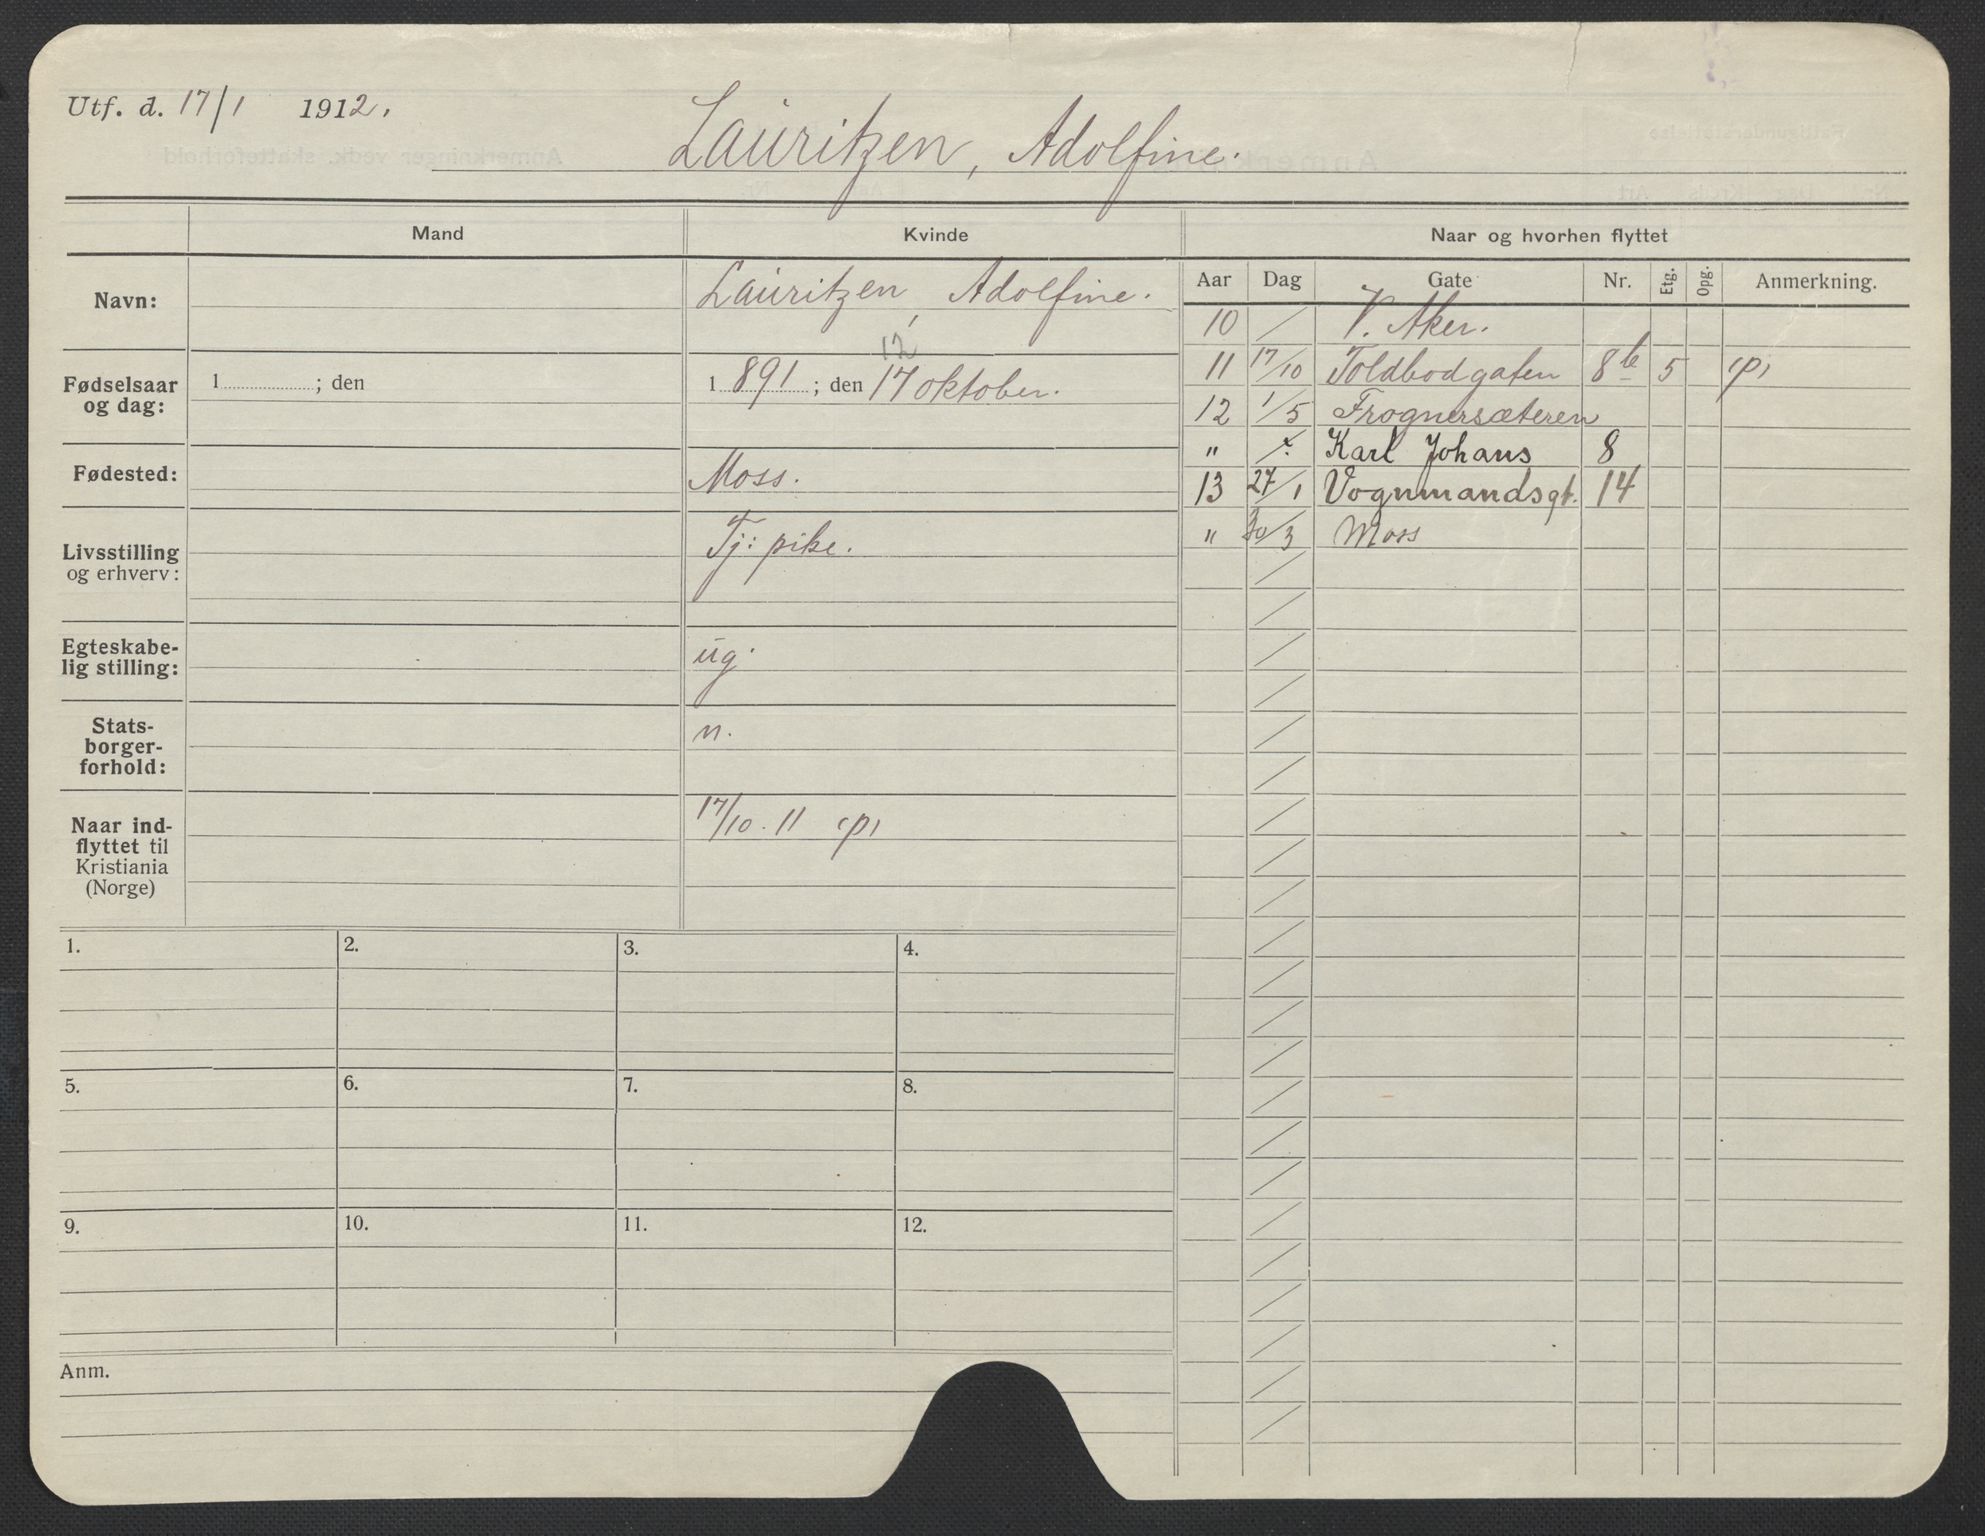 Utf. d. 17/1 1912.
Lauritzen, Adolfine.
Mand Kvinde Naar og hvorhen flyttet
Navn: Lauritzen, Adolfine.
Aar Dag Gate Nr. Etg. Opg. Anmerkning.
10 / V. Aker.
11 17/10 Toldbodgaten 8b 5 (p)
12 1/5 Frognersæteren
" / Karl Johans 8
13 27/1 Vognmandsgt. 14
" 30/3 Moss
12
Fødselsaar og dag: 1 ; den 1 891 ; den 17 oktober.
Fødested: Moss.
Livsstilling og erhverv: Tj: pike.
Egteskabe-
lig stilling: ug.
Stats-
borger-
forhold: n.
Naar ind-
flyttet til
Kristiania
(Norge) 17/10. 11 (p)
1. 2. 3. 4.
5. 6. 7. 8.
9. 10. 11. 12.
Anm.